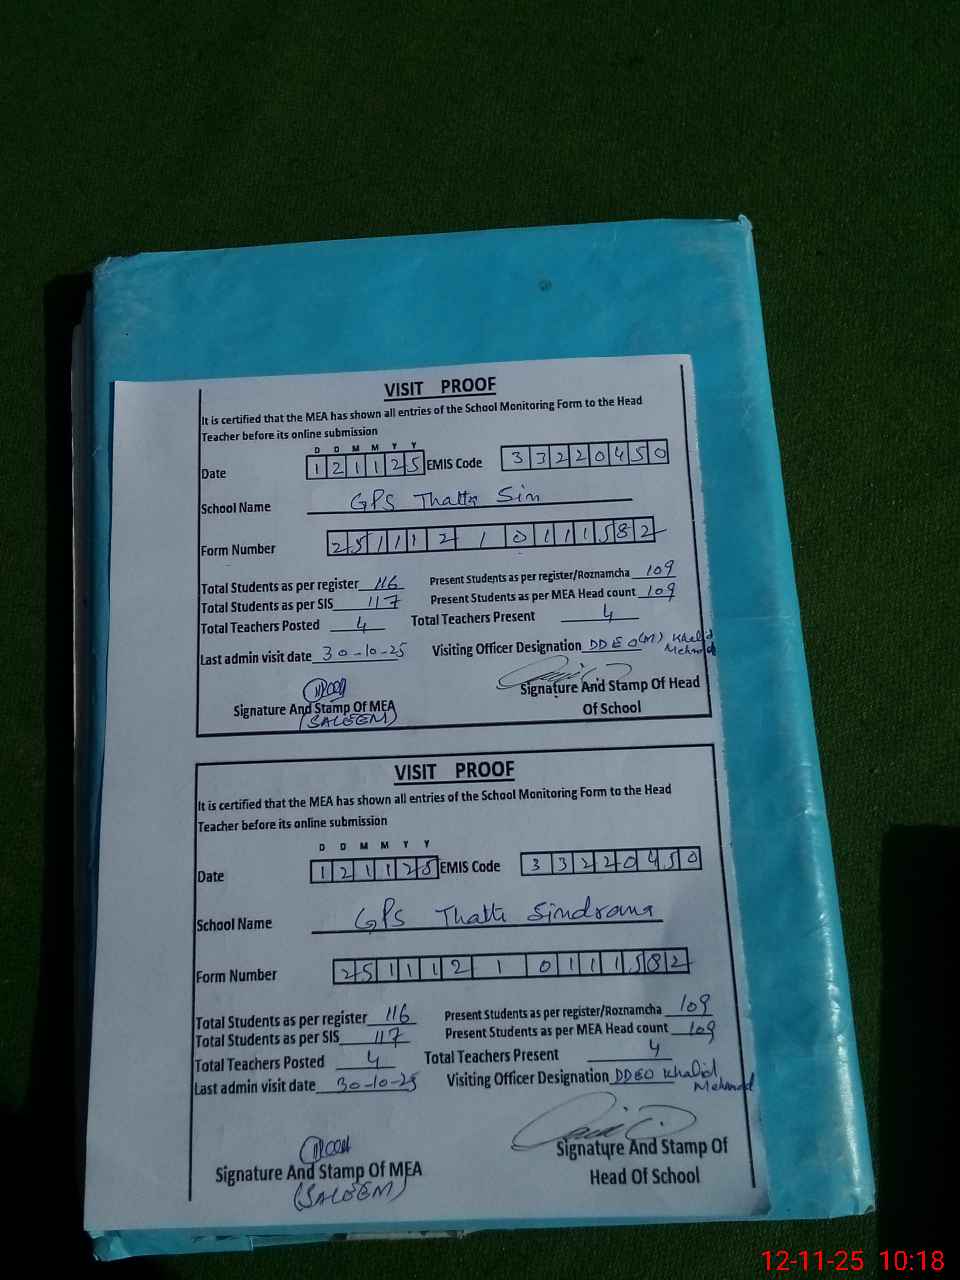 VISIT PROOF
It is certified that the MEA has shown all entries of the School Monitoring Form to the Head
Teacher before its online submission
D D M M Y Y
Date 1 2 1 1 2 5 EMIS Code 3 3 2 2 0 4 5 0
School Name GPS Thatta Sin
Form Number 2 5 1 1 1 2 1 0 1 1 1 5 8 2
Total Students as per register 116 Present Students as per register/Roznamcha 109
Total Students as per SIS 117 Present Students as per MEA Head count 109
Total Teachers Posted 4 Total Teachers Present 4
Last admin visit date 30-10-25 Visiting Officer Designation DDEO(M) Khalid
Mehmod
Signature And Stamp Of MEA Signature And Stamp Of Head
(SALEEM) Of School
VISIT PROOF
It is certified that the MEA has shown all entries of the School Monitoring Form to the Head
Teacher before its online submission
D D M M Y Y
Date 1 2 1 1 2 5 EMIS Code 3 3 2 2 0 4 5 0
School Name GPS Thatta Sindrana
Form Number 2 5 1 1 1 2 1 0 1 1 1 5 8 2
Total Students as per register 116 Present Students as per register/Roznamcha 109
Total Students as per SIS 117 Present Students as per MEA Head count 109
Total Teachers Posted 4 Total Teachers Present 4
Last admin visit date 30-10-25 Visiting Officer Designation DDEO Khalid
Mehmod
Signature And Stamp Of MEA Signature And Stamp Of
(SALEEM) Head Of School
12-11-25 10:18